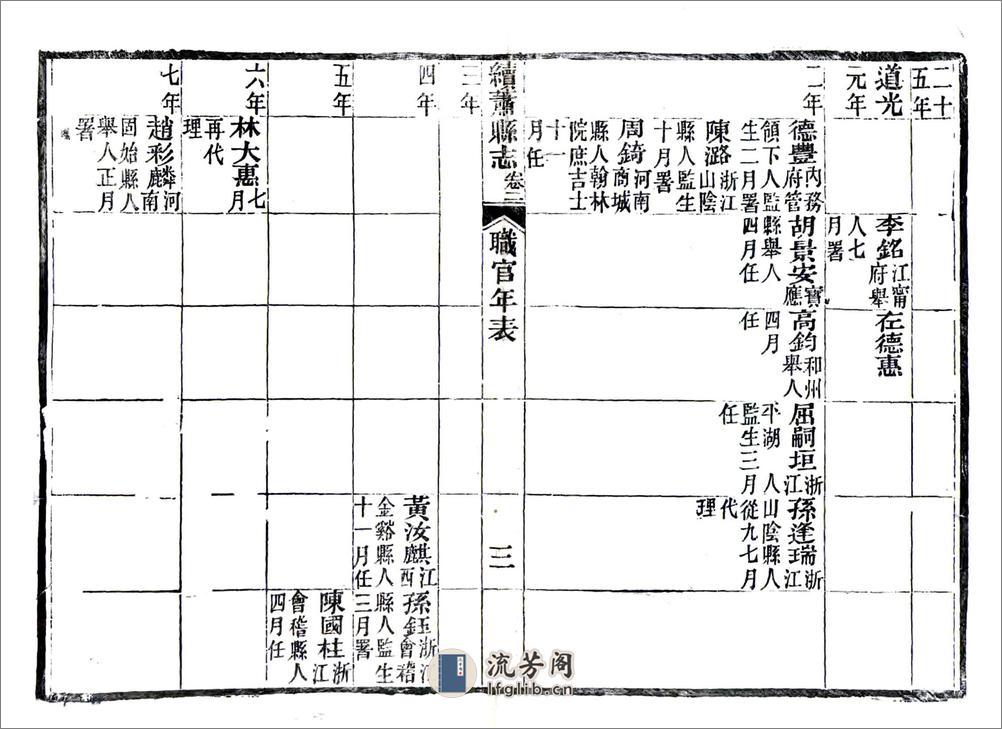 二十
五年
道光
元年
李銘江甯
府舉
人七
月署
在德惠
二年
德豐內務
府管
領下人監
生二月署
陳潞浙江
山陰
縣人監生
十月署
周錡河南
商城
縣人翰林
院庶吉士
十一
月任
胡景安寶
應
縣舉人
四月任
高鈞和州
舉人
四月
任
屈嗣垣浙
江
平湖人
監生三月
任
孫逢瑞浙
江
山陰縣人
從九七月
代
理
續蕭縣志
卷三
職官年表
三
三年
四年
黃汝麒江
西
金谿縣人
十一月任
孫鈺浙江
會稽
縣人監生
三月署
五年
陳國柱浙
江
會稽縣人
四月任
六年
林大惠七
月
再代
理
七年
趙彩麟河
南
固始縣人
舉人正月
署
流芳阁
lfglib.cn